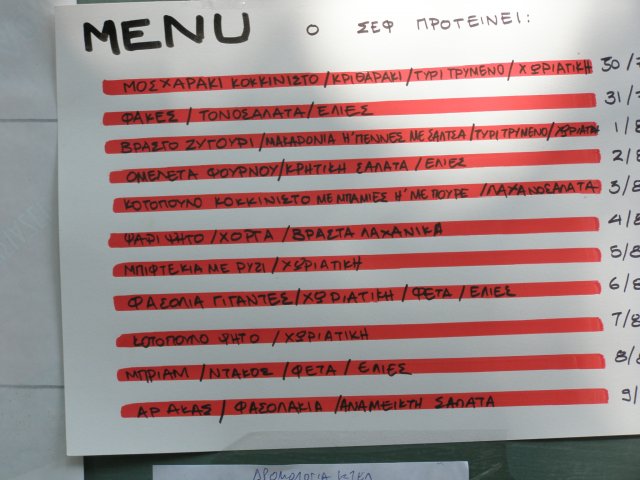 MENU Ο ΣΕΦ ΠΡΟΤΕΙΝΕΙ:
ΜΟΣΧΑΡΑΚΙ ΚΟΚΚΙΝΙΣΤΟ/ΚΡΙΘΑΡΑΚΙ/ΤΥΡΙ ΤΡΥΜΕΝΟ/ΧΩΡΙΑΤΙΚΗ 30/7
ΦΑΚΕΣ/ΤΟΝΟΣΑΛΑΤΑ/ΕΛΙΕΣ 31/7
ΒΡΑΣΤΟ ΖΥΓΟΥΡΙ/ΜΑΚΑΔΟΝΙΑ Η' ΠΕΝΝΕΣ ΜΕ ΣΑΛΤΣΑ/ΤΥΡΙ ΤΡΥΜΕΝΟ/ΧΩΡΙΑΤΙΚΗ 1/8
ΟΜΕΛΕΤΑ ΦΟΥΡΝΟΥ/ΚΡΗΤΙΚΗ ΣΑΛΑΤΑ/ΕΛΙΕΣ 2/8
ΚΟΤΟΠΟΥΛΟ ΚΟΚΚΙΝΙΣΤΟ ΜΕ ΜΠΑΜΙΕΣ Η' ΜΕ ΠΟΥΡΕ/ΛΑΧΑΝΟΣΑΛΑΤΑ 3/8
ΨΑΡΙ ΨΗΤΟ/ΧΟΡΤΑ/ΒΡΑΣΤΑ ΛΑΧΑΝΙΚΑ 4/8
ΜΠΙΦΤΕΚΙΑ ΜΕ ΡΥΖΙ/ΧΩΡΙΑΤΙΚΗ 5/8
ΦΑΣΟΛΙΑ ΓΙΓΑΝΤΕΣ/ΧΩΡΙΑΤΙΚΗ/ΦΕΤΑ/ΕΛΙΕΣ 6/8
ΚΟΤΟΠΟΥΛΟ ΨΗΤΟ/ΧΩΡΙΑΤΙΚΗ 7/8
ΜΠΡΙΑΜ/ΝΤΑΚΟΣ/ΦΕΤΑ/ΕΛΙΕΣ 8/8
ΑΡΑΚΑΣ/ΦΑΣΟΛΑΚΙΑ/ΑΝΑΜΕΙΚΤΗ ΣΑΛΑΤΑ 9/
ΔΡΟΜΟΛΟΓΙΑ ΚΤΕΛ